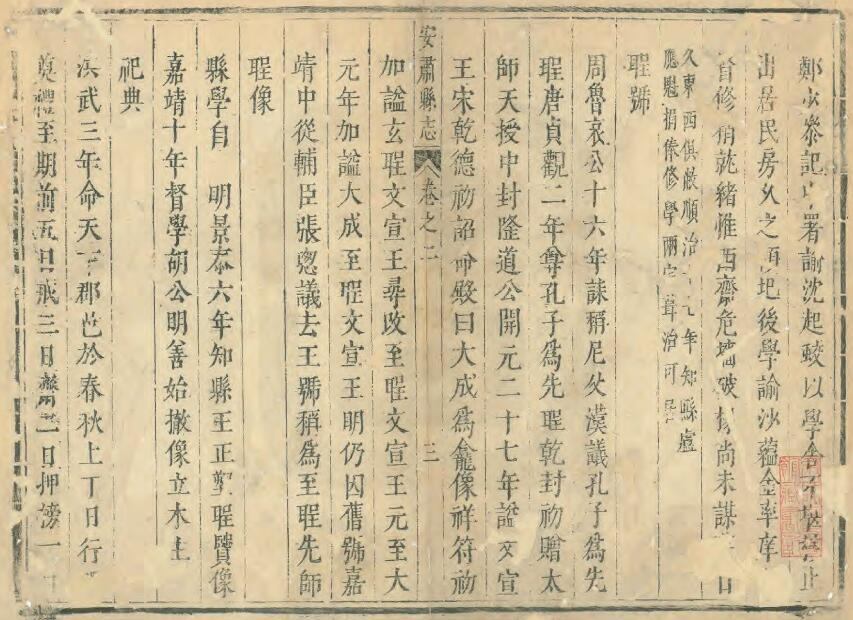 鄭永泰記署諭沈起蛟以學舍不堪棲止
出居民房久之頹圯後學諭沙蘊金率庠
首修稍就緒惟西齋危墻破尚未謀日
久東西俱敝順治元年知縣盧
應魁捐俸修學兩葺治可居
聖號
周魯哀公十六年誄稱尼父漢議孔子為先
聖唐貞觀二年尊孔子為先聖乾封初贈太
師天授中封隆道公開元二十七年謚文宣
安肅縣志
卷之二
三
王宋乾德初詔命殿曰大成為龕像祥符初
加謚玄聖文宣王尋改至聖文宣王元至大
元年加謚大成至聖文宣王明仍因舊號嘉
靖中從輔臣張璁議去王號稱為至聖先師
聖像
縣學自 明景泰六年知縣王正塑聖賢像
嘉靖十年督學胡公明善始撤像立木主
祀典
洪武三年命天下郡邑於春秋上丁日行
奠禮至期前五日戒三日齋二日押榜一